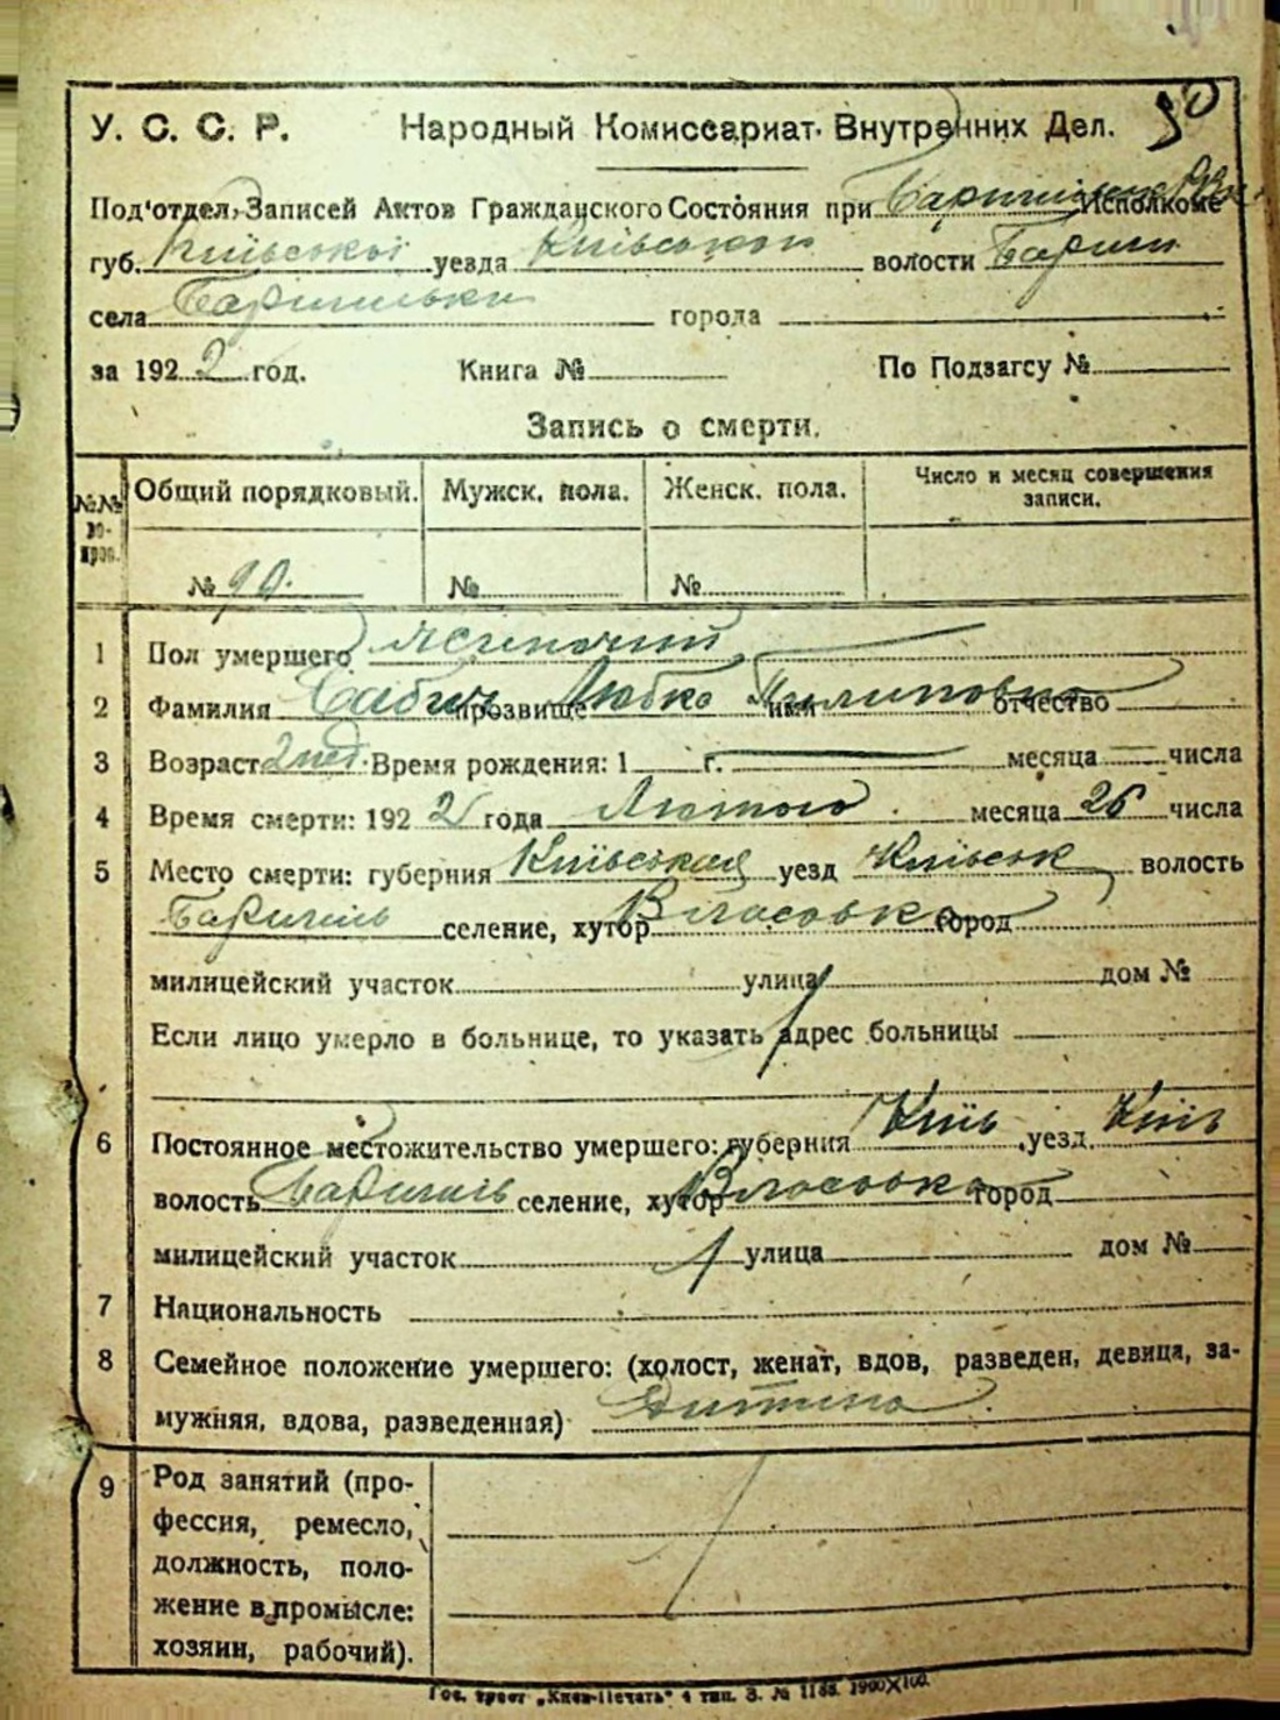 90
У. С. С. Р. Народный Комиссариат Внутренних Дел.
Под'отдел Записей Актов Гражданского Состояния при Исполкоме
губ. Київської уезда Київського волости Бариш
села Баришівки города
за 1922 год. Книга № По Подзагсу №
Запись о смерти.
№№ вопрос. Общий порядковый. Мужск. пола. Женск. пола. Число и месяц совершения записи.
№ 90. № №
1 Пол умершего жіночий
2 Фамилия Бабич прозвище Любка имя Пилиповна отчество
3 Возраст 2 нед. Время рождения: 1 г. месяца числа
4 Время смерти: 1922 года Лютого месяца 26 числа
5 Место смерти: губерния Київская уезд Київськ волость
Баришів селение, хутор Власовка город
милицейский участок улица дом №
Если лицо умерло в больнице, то указать адрес больницы
6 Постоянное местожительство умершего: губерния Київ уезд Київ
волость Баришів селение, хутор Власовка город
милицейский участок улица дом №
7 Национальность
8 Семейное положение умершего: (холост, женат, вдов, разведен, девица, за-
мужняя, вдова, разведенная) Дитина
9 Род занятий (про-
фессия, ремесло,
должность, поло-
жение в промысле:
хозяин, рабочий).
Гос. трест „Киев-Печать" 4 тип. З. № 1188. 1900×100.